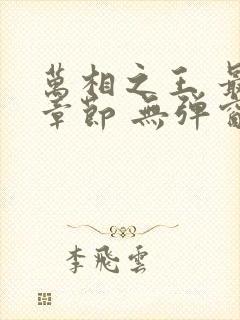 萬相之王 最
章節 無彈窗
李飛雲